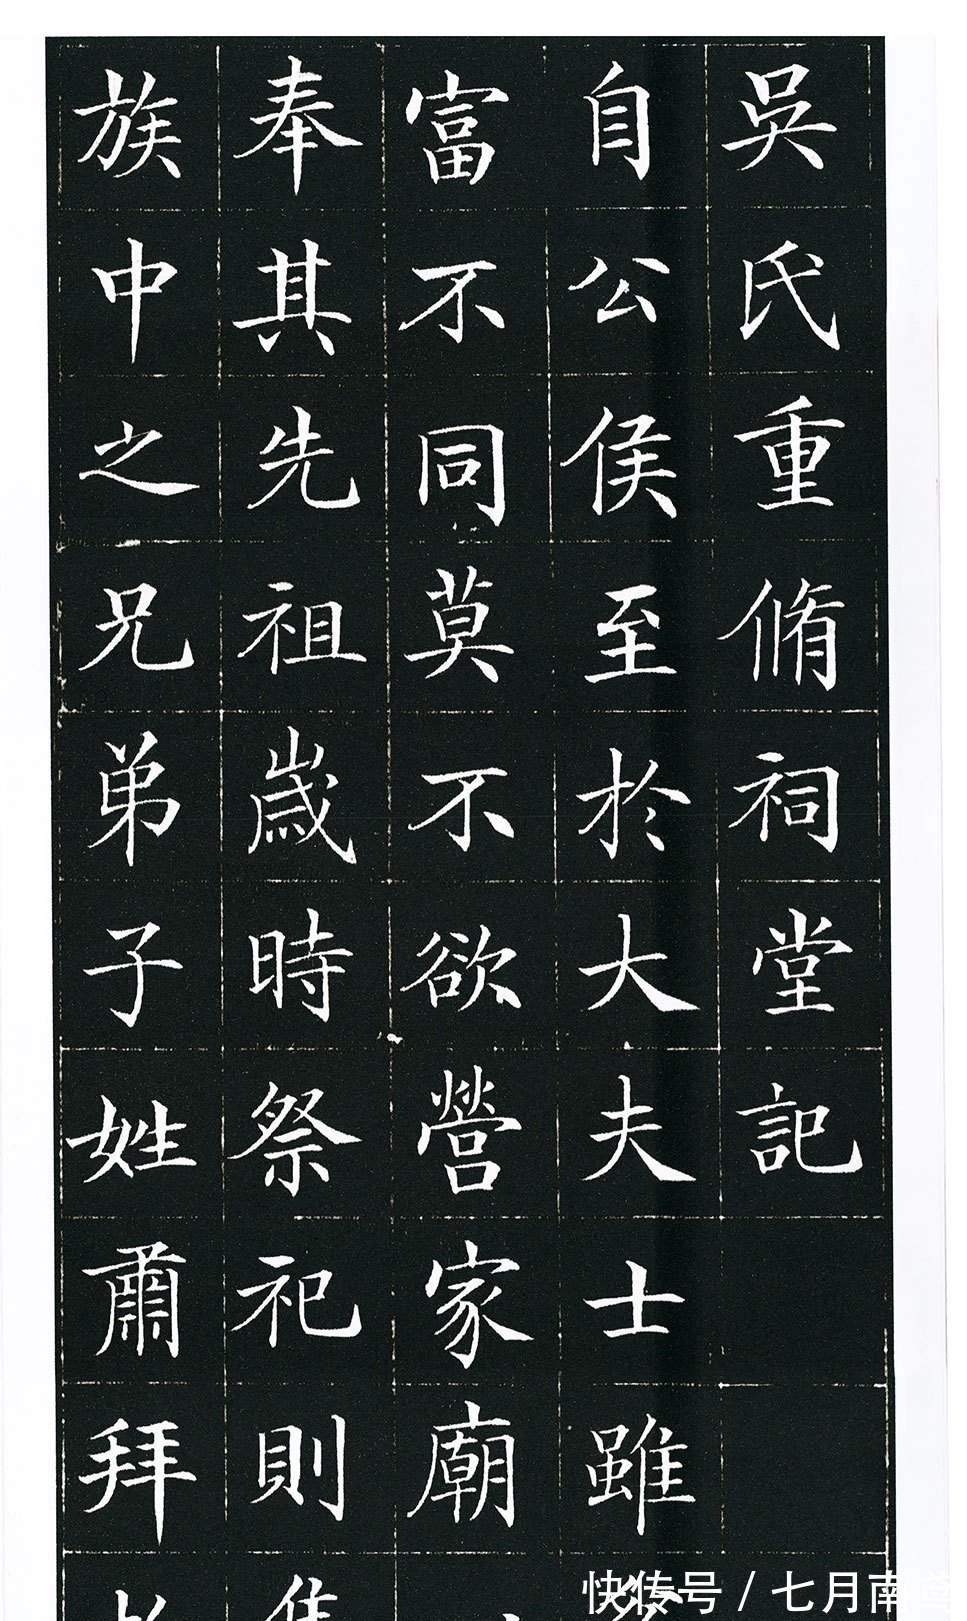 吳氏重脩祠堂記
自公侯至於大夫士雖
富不同莫不欲營家廟
奉其先祖歲時祭祀則
族中之兄弟子姓肅拜
快传号 / 七月南